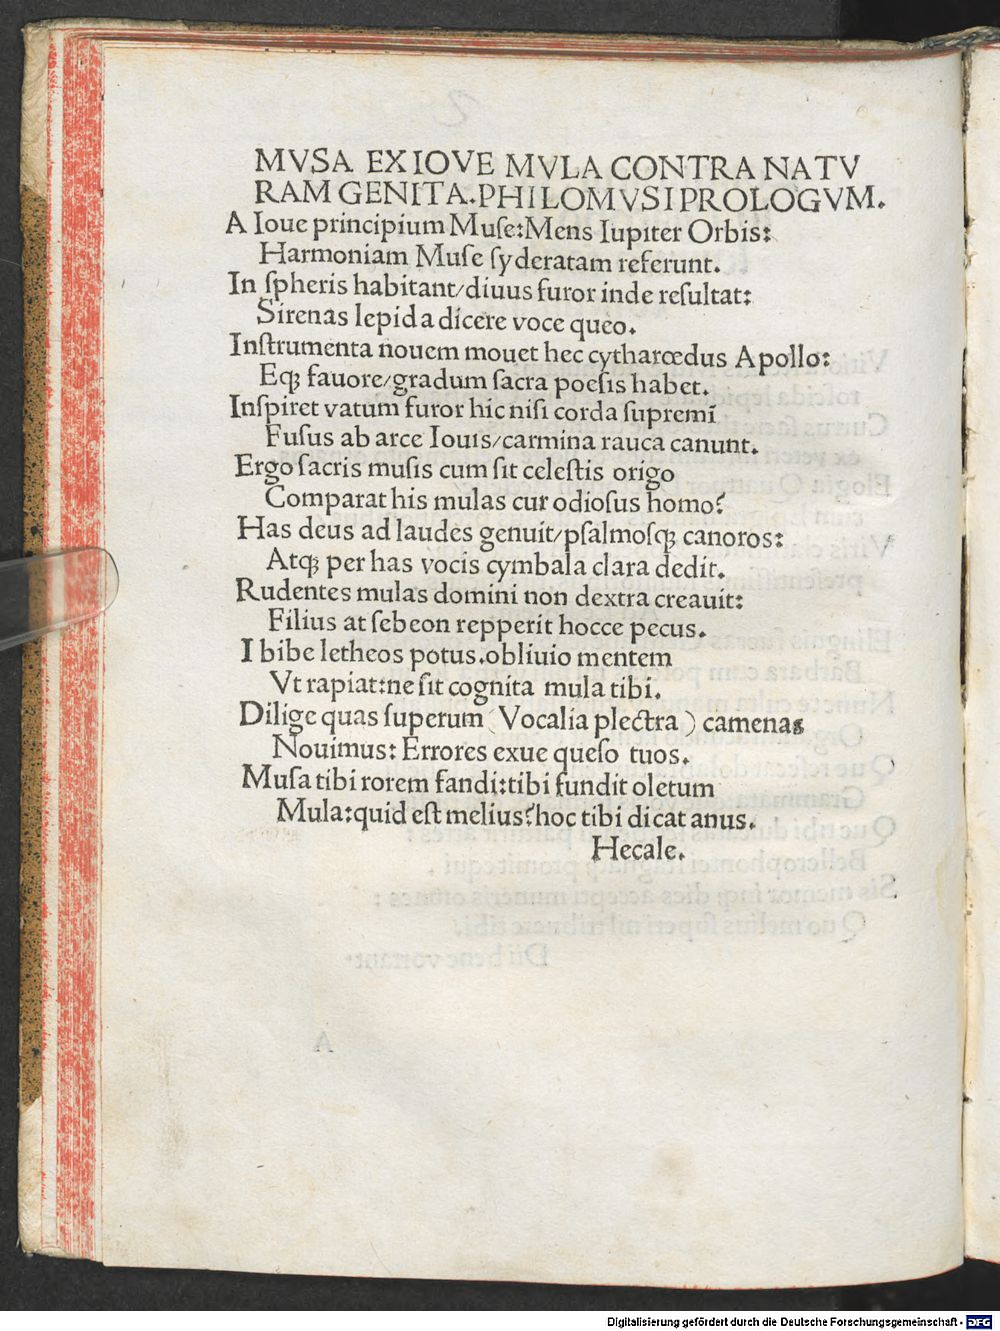 MVSA EX IOVE MVLA CONTRA NATV
RAM GENITA.PHILOMVSI PROLOGVM.
A Ioue principium Muſe:Mens Iupiter Orbis:
Harmoniam Muſe ſyderatam referunt.
In ſpheris habitant/diuus furor inde reſultat:
Sirenas lepida dicere voce queo.
Inſtrumenta nouem mouet hec cytharœdus Apollo:
Eqꝫ fauore/gradum ſacra poeſis habet.
Inſpiret vatum furor hic niſi corda ſupremi
Fuſus ab arce Iouis/carmina rauca canunt.
Ergo ſacris muſis cum ſit celeſtis origo
Comparat his mulas cur odioſus homo?
Has deus ad laudes genuit/pſalmoſqꝫ canoros:
Atqꝫ per has vocis cymbala clara dedit.
Rudentes mulas domini non dextra creauit:
Filius at ſebeon repperit hocce pecus.
I bibe letheos potus.obliuio mentem
Vt rapiat:ne ſit cognita mula tibi.
Dilige quas ſuperum (Vocalia plectra) camenas
Nouimus: Errores exue queſo tuos.
Muſa tibi rorem fandi:tibi fundit oletum
Mula:quid eſt melius?hoc tibi dicat anus.
Hecale.
Digitalisierung gefördert durch die Deutsche Forschungsgemeinschaft - DFG